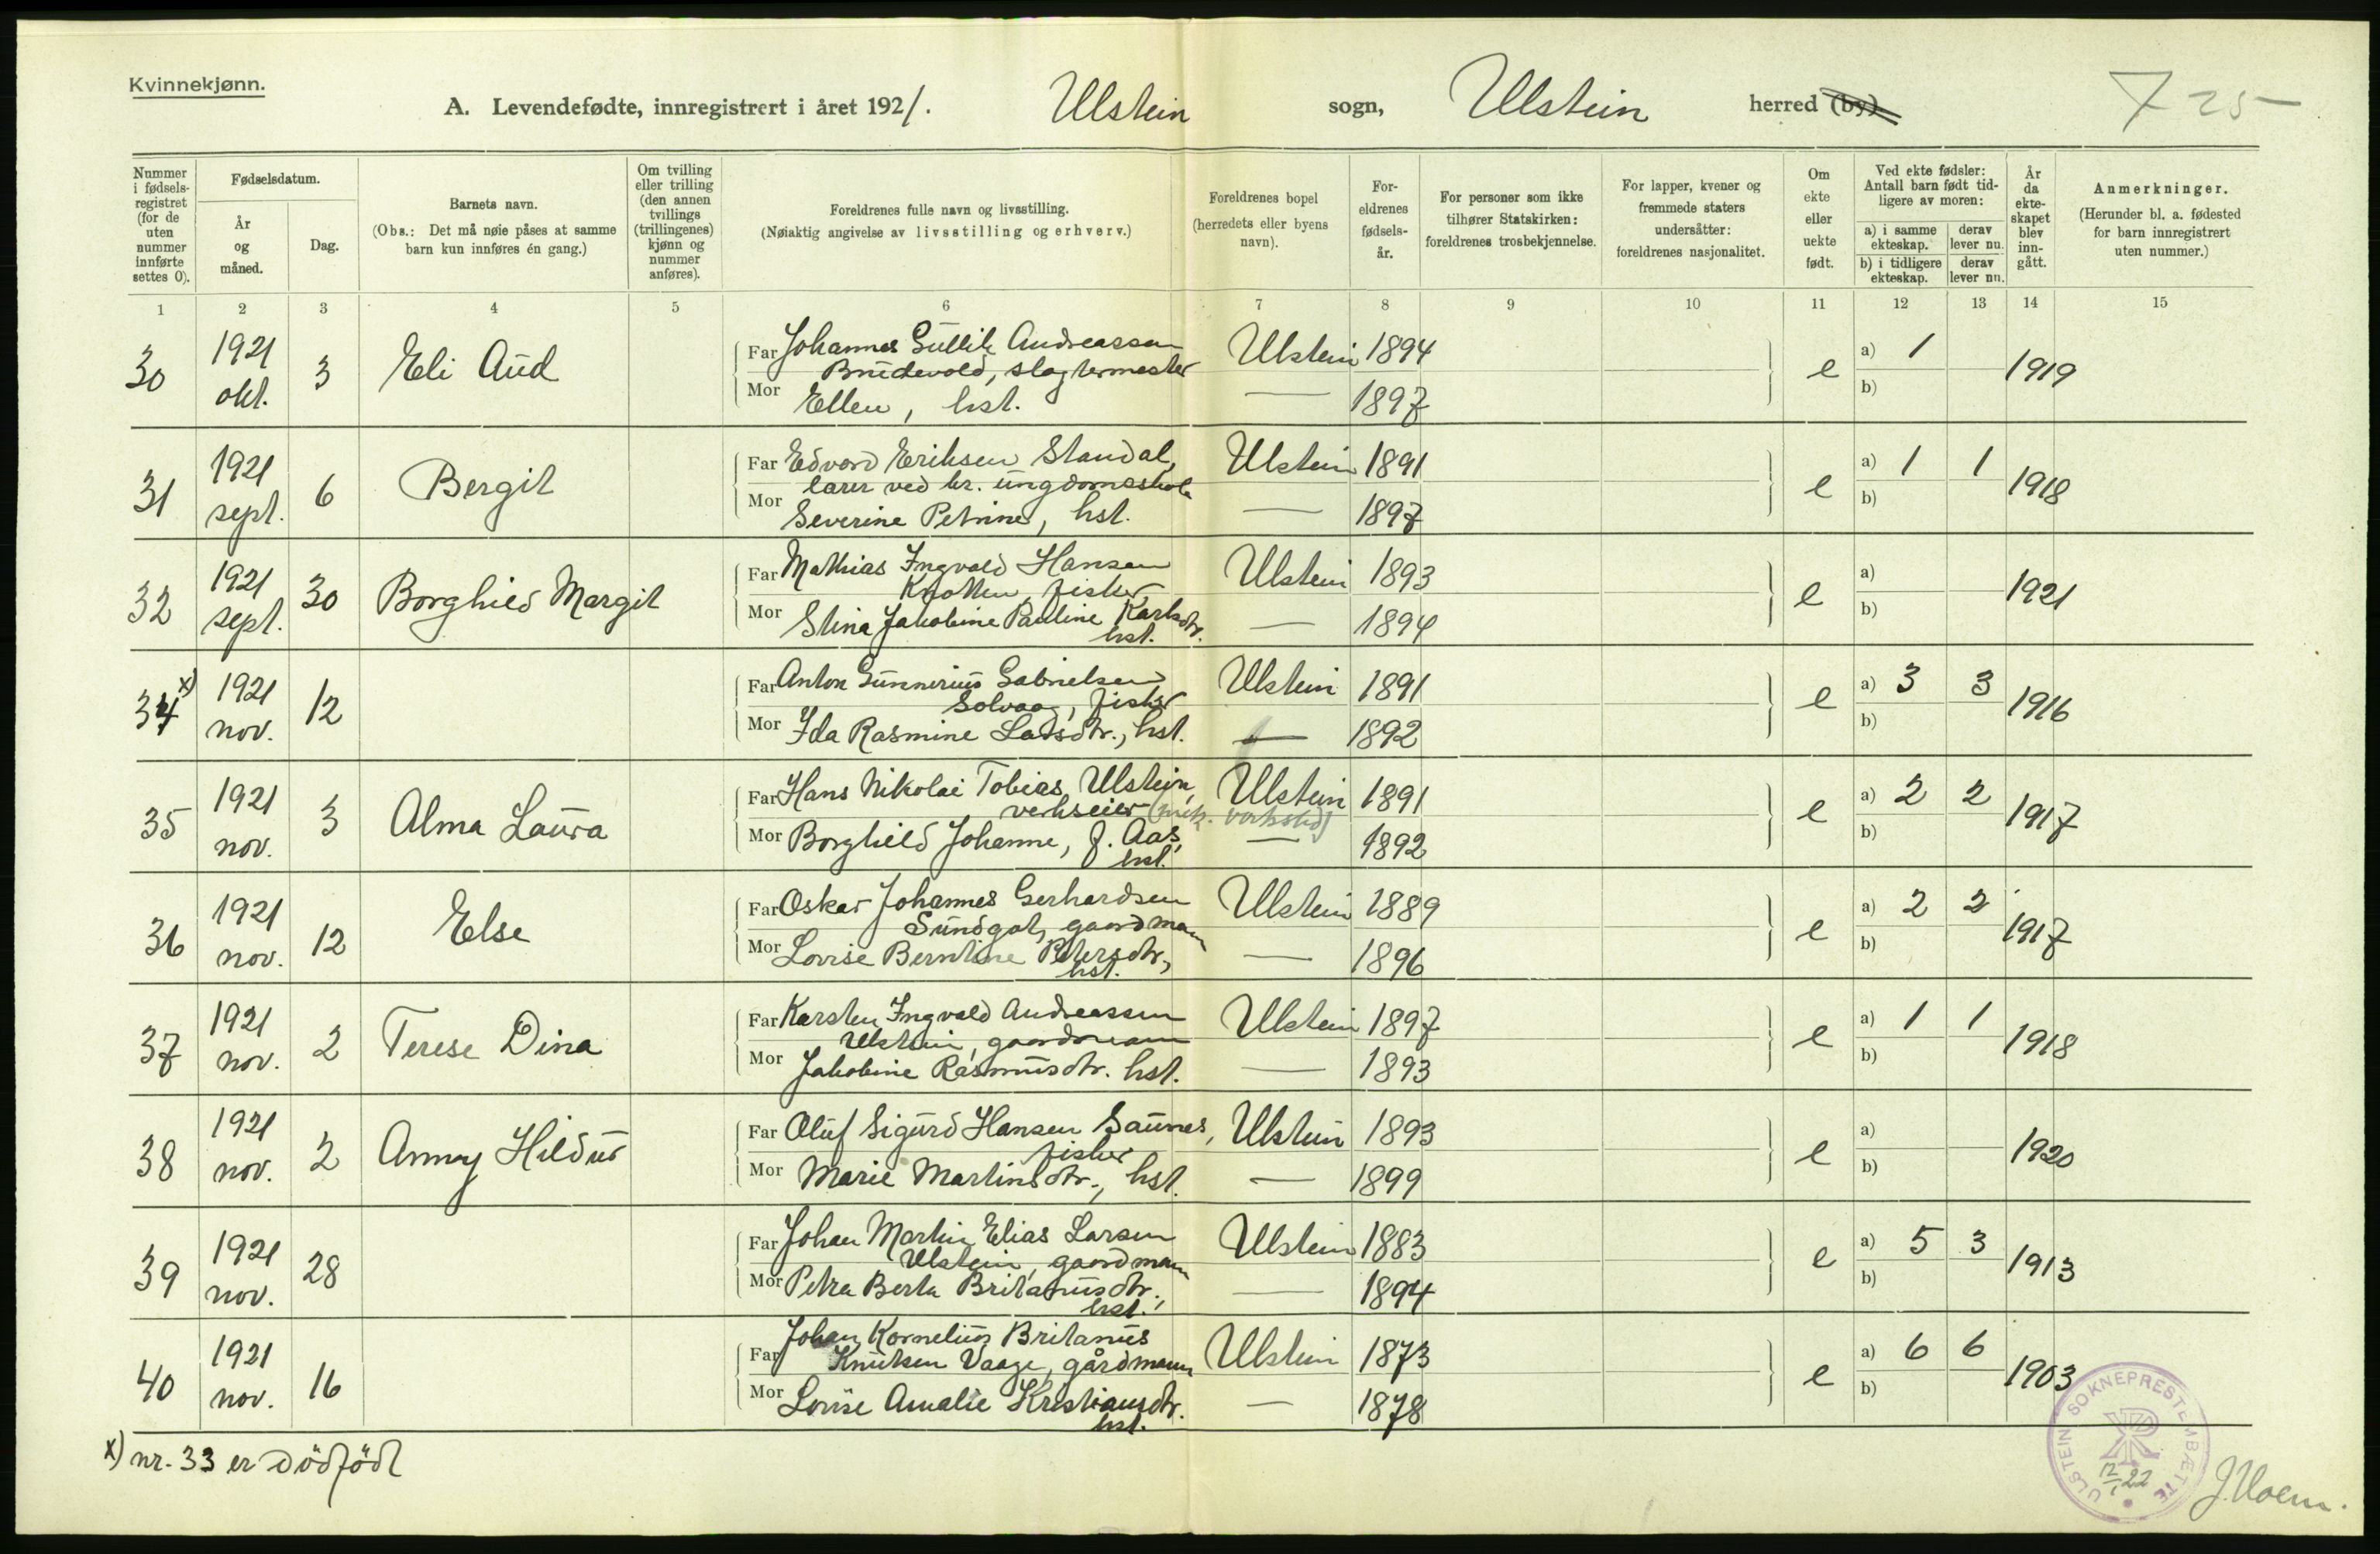 Kvinnekjønn.
A. Levendefødte, innregistrert i året 1921. Ulstein sogn, Ulstein herred (by)
7 25
Nummer i fødselsregistret (for de uten nummer innførte settes 0).
Fødselsdatum.
År og måned.
Dag.
Barnets navn.
(Obs.: Det må nøie påses at samme barn kun innføres én gang.)
Om tvilling eller trilling (den annen tvillings (trillingenes) kjønn og nummer anføres).
Foreldrenes fulle navn og livsstilling.
(Nøiaktig angivelse av livsstilling og erhverv.)
Foreldrenes bopel (herredets eller byens navn).
Foreldrenes fødselsår.
For personer som ikke tilhører Statskirken: foreldrenes trosbekjennelse.
For lapper, kvener og fremmede staters undersåtter: foreldrenes nasjonalitet.
Om ekte eller uekte født.
Ved ekte fødsler: Antall barn født tidligere av moren:
a) i samme ekteskap. derav lever nu.
b) i tidligere ekteskap. derav lever nu.
År da ekteskapet blev inngått.
Anmerkninger.
(Herunder bl. a. fødested for barn innregistrert uten nummer.)
1 2 3 4 5 6 7 8 9 10 11 12 13 14 15
30 1921 okt. 3 Eli Aud Far Johannes Gullik Andreassen Ulstein 1894 e a) 1 1919
Brudevold, slagtermester
Mor Ellen, hst. — 1897 b)
31 1921 sept. 6 Bergit Far Edvard Eriksen Standal, Ulstein 1891 e a) 1 1 1918
lærer ved kr. ungdomsskole
Mor Severine Petrine, hst. — 1897 b)
32 1921 sept. 30 Borghild Margit Far Mathias Ingvald Hansen Ulstein 1893 e a) 1921
Knotten, fisker
Mor Stina Jakobine Pauline Karlsdtr. — 1894 b)
hst.
34 x) 1921 nov. 12 Far Anton Gunnerius Gabrielsen Ulstein 1891 e a) 3 3 1916
Solvaag, fisker
Mor Ida Rasmine Larsdtr., hst. — 1892 b)
35 1921 nov. 3 Alma Laura Far Hans Nikolai Tobias Ulstein, Ulstein 1891 e a) 2 2 1917
verkseier (mek. verksted)
Mor Borghild Johanne, f. Aas, — 1892 b)
hst.
36 1921 nov. 12 Else Far Oskar Johannes Gerhardsen Ulstein 1889 e a) 2 2 1917
Sundgot, gaardmann
Mor Lovise Berntine Petersdtr., — 1896 b)
hst.
37 1921 nov. 2 Terese Dina Far Karsten Ingvald Andreassen Ulstein 1897 e a) 1 1 1918
Ulstein, gaardmann
Mor Jakobine Rasmusdtr. hst. — 1893 b)
38 1921 nov. 2 Anny Hildur Far Oluf Sigurd Hansen Saunes, Ulstein 1893 e a) 1920
fisker
Mor Marie Martinsdtr., hst. — 1899 b)
39 1921 nov. 28 Far Johan Martin Elias Larsen Ulstein 1883 e a) 5 3 1913
Ulstein, gaardmann
Mor Petra Berta Britanusdtr., — 1894 b)
hst.
40 1921 nov. 16 Johan Kornelius Britanus Ulstein 1873 e a) 6 6 1903
Far Knutsen Vaage, gårdmann
Mor Lovise Amalie Kristiansdtr. — 1878 b)
hst.
x) nr. 33 er dödfödt
ULSTEIN SOKNEPRESTEMBÆTTE
12/1 22